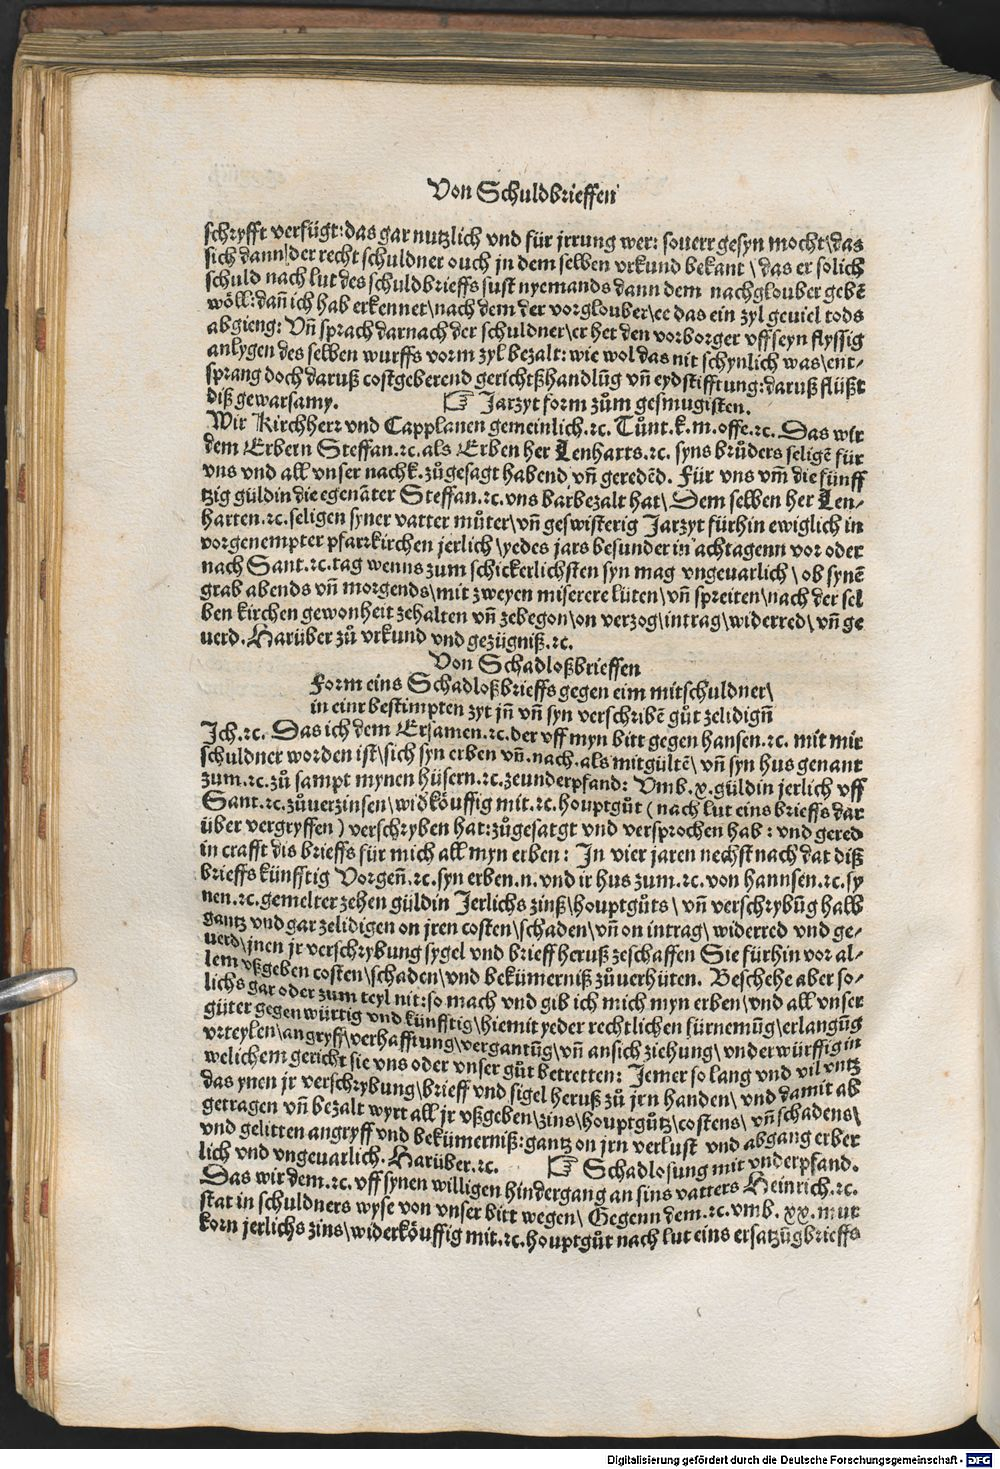 Von Schuldbrieffen
schryfft verfügt: das gar nutzlich vnd für jrrung wer: souerr gesyn mocht\das
sich dann der recht schuldner ouch jn dem selben vrkund bekant \ das er solich
schuld nach lut des schuldbrieffs sust nyemands dann dem nachglouber gebē
wöll: dañ ich hab erkennet\nach dem der vorglouber\ee das ein zyl geuiel tods
abgieng: Vñ sprach darnach der schuldner\er het den vorborger vff seyn flyssig
anlygen des selben wurffs vorm zyl bezalt: wie wol das nit schynlich was\ent-
sprang doch daruß costgeberend gerichtßhandlūg vñ eydstifftung: daruß flüßt
diß gewarsamy. ☞ Jarzyt form zům gesmugisten.
Wir Kirchherr vnd Capplanen gemeinlich.⁊c. Tůnt.k.m.offe.⁊c. Das wir
dem Erbern Steffan.⁊c.als Erben her Lenharts.⁊c. syns brůders seligē für
vns vnd all vnser nachk.zůgesagt habend vñ geredēd. Für vns vm̄ die fünff
tzig güldin die egenāter Steffan.⁊c.vns barbezalt hat\ Dem selben her Len-
harten.⁊c.seligen syner vatter můter\vñ geswisterig Jarzyt fürhin ewiglich in
vorgenempter pfarrkirchen jerlich \yedes jars besunder in achtagenn vor oder
nach Sant.⁊c.tag wenns zum schickerlichsten syn mag vngeuarlich \ ob synē
grab abends vñ morgends\mit zweyen miserere lüten\vñ spreiten\nach der sel
ben kirchen gewonheit zehalten vñ zebegon\on verzog\intrag\widerred\vñ ge
uerd. Harüber zů vrkund vnd gezügniß.⁊c.
Von Schadloßbrieffen
Form eins Schadloßbrieffs gegen eim mitschuldner\
in einr bestimpten zyt jñ vñ syn verschribē gůt zelidigñ
Jch.⁊c. Das ich dem Ersamen.⁊c.der vff myn bitt gegen hansen.⁊c. mit mir
schuldner worden ist\sich syn erben vñ.nach.als mitgültē\ vñ syn hus genant
zum.⁊c.zů sampt mynen hüsern.⁊c.zeunderpfand: Vmb.x.güldin jerlich vff
Sant.⁊c.zůuerzinsen\widköuffig mit.⁊c.houptgůt (nach lut eins brieffs dar
über vergryffen) verschryben hat: zůgesatgt vnd versprochen hab: vnd gered
in crafft dis brieffs für mich all myn erben: In vier jaren nechst nach dat diß
brieffs künfftig Vorgeñ.⁊c.syn erben.n.vnd ir hus zum.⁊c.von hannsen.⁊c.sy
nen.⁊c.gemelter zehen güldin Jerlichs zinß\houptgůts\ vñ verschrybūg halb
gantz vnd gar zelidigen on jren costen\schaden\vñ on intrag\ widerred vnd ge-
uerd\jnen jr verschrybung sygel vnd brieff heruß zeschaffen Sie fürhin vor al-
lem vßgeben costen\schaden\vnd bekümerniß zůuerhüten. Beschehe aber so-
lichs gar oder zum teyl nit: so mach vnd gib ich mich myn erben\vnd all vnser
güter gegenwürtig vnd künfftig\hiemit yeder rechtlichen fürnemūg\erlangūg
vrteylen\angryff\verhafftung\vergantūg\vñ ansich ziehung\vnderwürffig in
welichem gericht sie vns oder vnser gůt betretten: Jemer so lang vnd vil vntz
das ynen jr verschrybung\brieff vnd sigel heruß zů jrn handen\ vnd damit ab
getragen vñ bezalt wyrt all jr vßgeben\zins\houptgůtz\costens\ vñ schadens\
vnd gelitten angryff vnd bekümerniß: gantz on jrn verlust vnd abgang erber
lich vnd vngeuarlich. Harüber.⁊c. ☞ Schadlosung mit vnderpfand.
Das wir dem.⁊c.vff synen willigen hindergang an sins vatters Heinrich.⁊c.
stat in schuldners wyse von vnser bitt wegen\ Gegenn dem.⁊c.vmb.xx.mut
korn jerlichs zins\widerköuffig mit.⁊c.houptgůt nach lut eins ersatzūgbrieffs
Digitalisierung gefördert durch die Deutsche Forschungsgemeinschaft - DFG